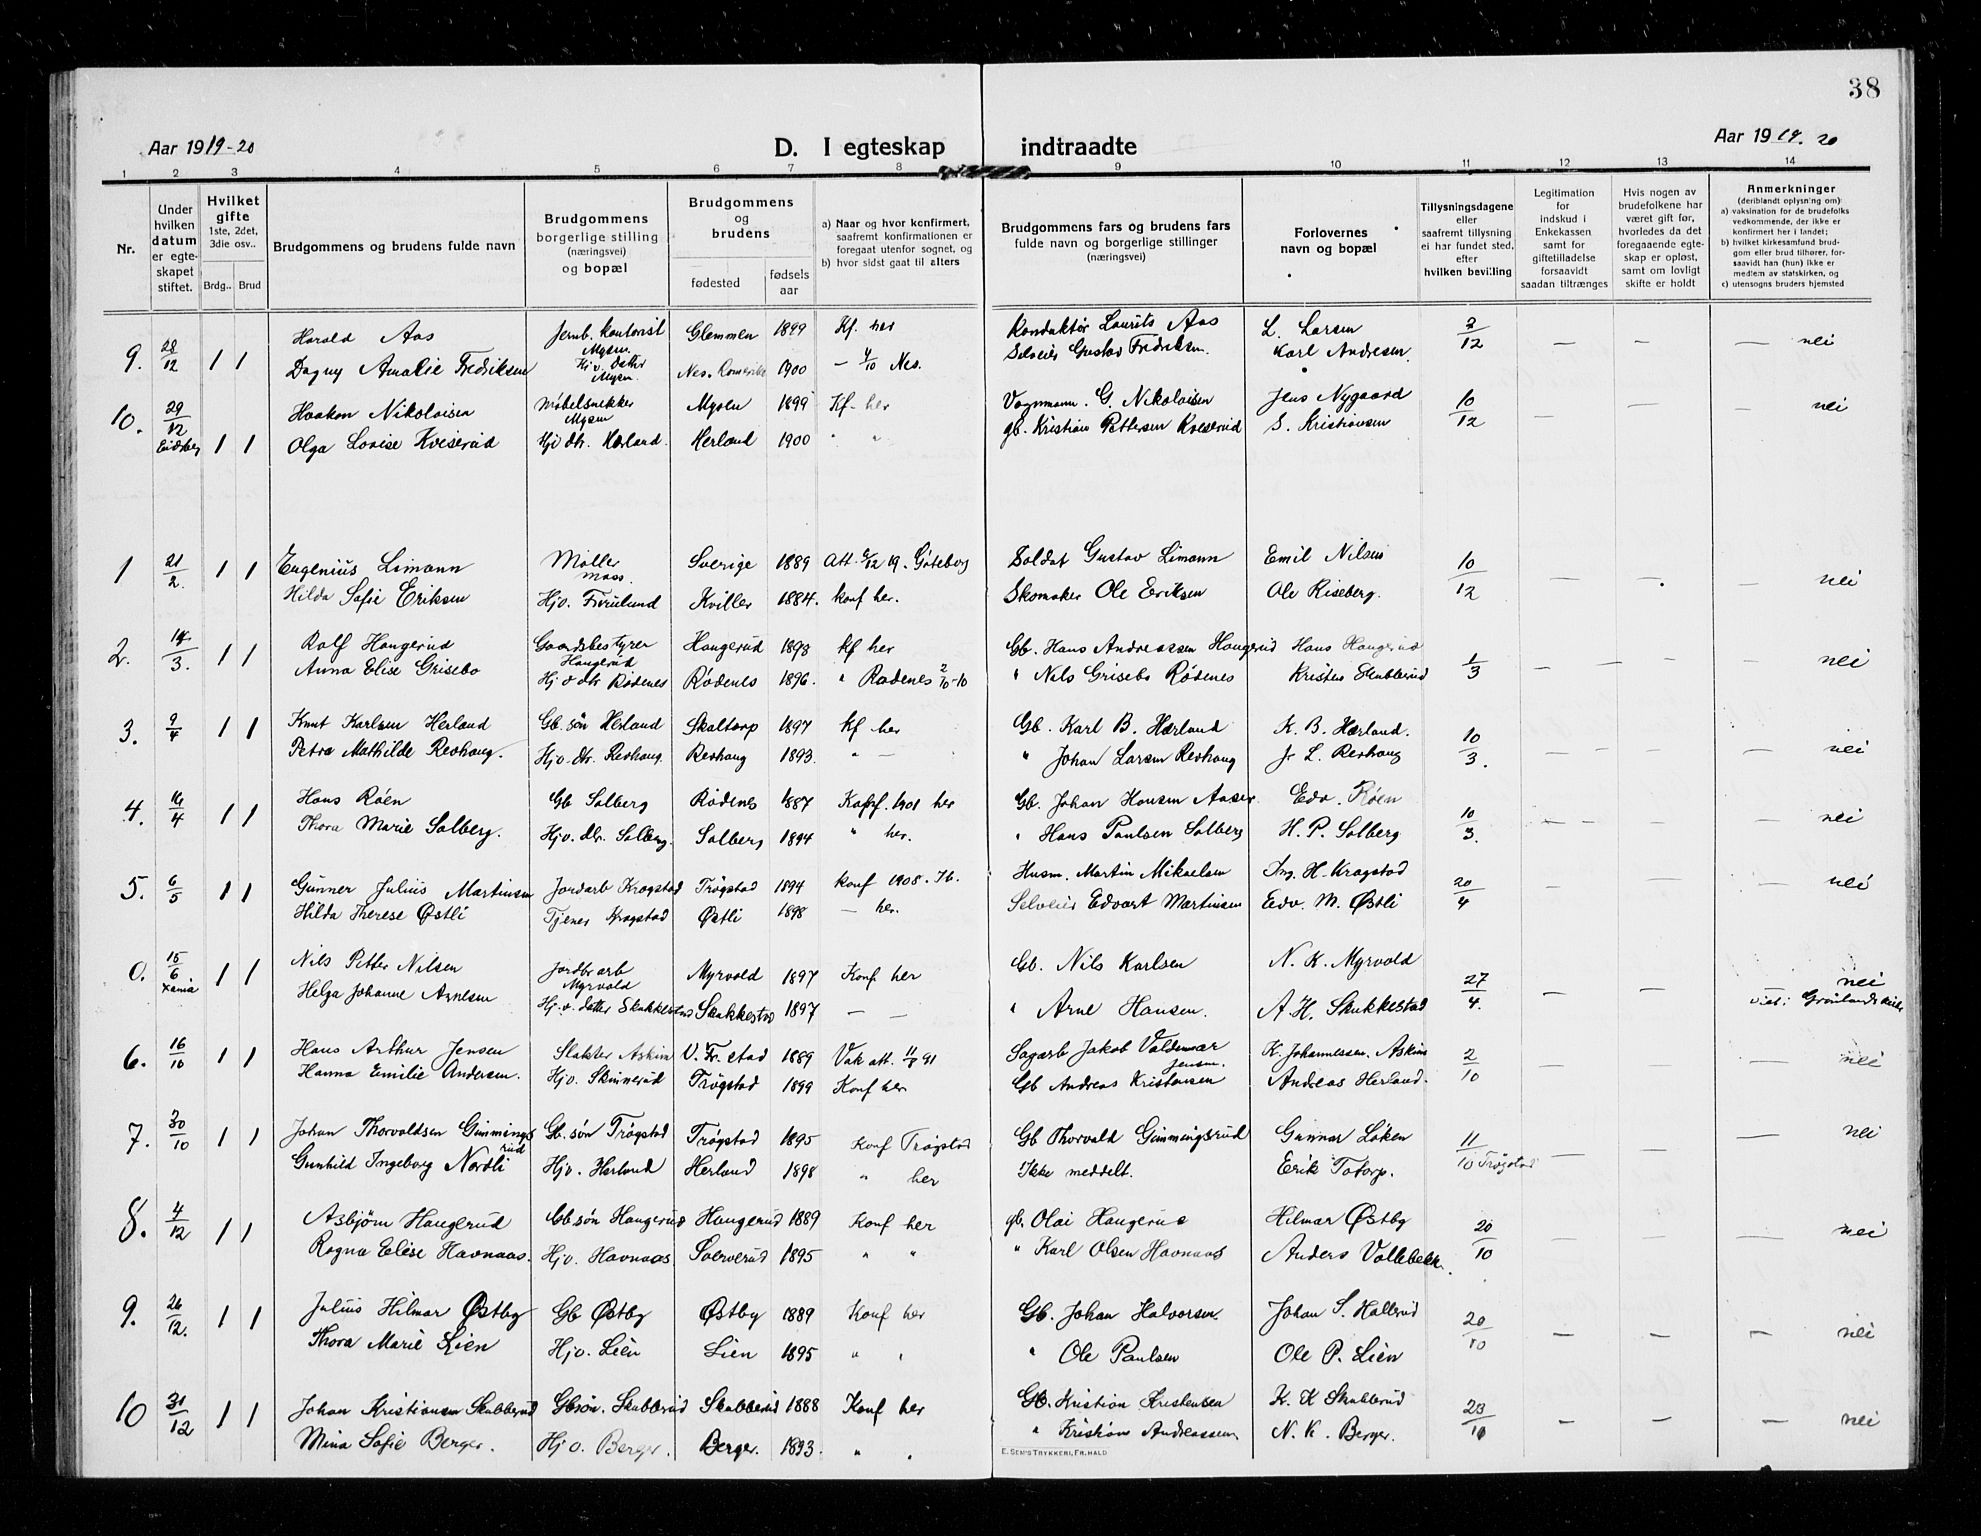 38
Aar 1919-20
D. I egteskap indtraadte
Aar 1919. 20
1 2 3 4 5 6 7 8 9 10 11 12 13 14
Nr.
Under hvilken datum er egteskapet stiftet.
Hvilket gifte 1ste, 2det, 3die osv..
Brdg.. Brud
Brudgommens og brudens fulde navn
Brudgommens borgerlige stilling (næringsvei) og bopæl
Brudgommens og brudens
fødested
fødsels aar
a) Naar og hvor konfirmert, saafremt konfirmationen er foregaat utenfor sognet, og
b) hvor sidst gaat til alters
Brudgommens fars og brudens fars fulde navn og borgerlige stillinger (næringsvei)
Forlovernes navn og bopæl
Tillysningsdagene eller saafremt tillysning ei har fundet sted, efter hvilken bevilling
Legitimation for indskud i Enkekassen samt for giftetilladelse forsaavidt saadan tiltrænges
Hvis nogen av brudefolkene har været gift før, hvorledes da det foregaaende egteskap er opløst, samt om lovligt skifte er holdt
Anmerkninger (deriblandt oplysning om)
a) vaksination for de brudefolks vedkommende, der ikke er konfirmert her i landet;
b) hvilket kirkesamfund brudgom eller brud tilhører, forsaavidt han (hun) ikke er medlem av statskirken, og
c) utensogns bruders hjemsted
9. 28/12 1 1 Harald Aas Jernb. kontorist Mysen Glemmen 1899 Kf. her Konduktør Laurits Aas L. Larsen 2/12 — — — nei
Dagny Amalie Fredriksen Hj. v. datter Mysen Nes. Romerike 1900 — 4/10 Nes. Selveier Gustav Fredriksen. Karl Andresen.
10. 29/12 Eidsberg 1 1 Haakon Nikolaisen Møbelsnekker Mysen Mysen 1899 Kf. her Vognmann. G. Nikolaisen Jens Nygaard 10/12 — — — nei
Olga Lovise Kveserud Hj dtr. Hærland. Herland 1900 " " gb. Kristian Pettersen Kveserud S. Kristiansen
1 21/2. 1 1 Eugenius Limann Møller Moss. Sverige 1889 Att. 6/12 19. Göteborg Soldat Gustav Limann Emil Nilsen 10/12 — — — nei
Hilda Sofie Eriksen Hjv. Furulund Kviller 1884. konf her. Skomaker Ole Eriksen Ole Riseberg.
2. 14/3. 1 1 Rolf Haugerud Gaardsbestyrer Haugerud Haugerud 1893 Kf her Gb. Hans Andreassen Haugerud Hans Haugerud 1/3 — — — nei
Anna Elise Grisebo Hj v dtr Rødenes Rødenes 1896. " Rødenes 2/10-10 " Nils Grisebo Rødenes Kristen Skubberud
3. 9/4 1 1 Knut Karlsen Herland Gb. søn Herland Skaltorp 1897 Kf her Gb. Karl B. Hærland K. B. Hærland. 10/3. — — — nei
Petra Mathilde Revhaug. Hjv. dtr. Revhaug. Revhaug 1893. " — " Johan Larsen Revhaug J. L. Revhaug
4. 14/4 1 1 Hans Røen Gb Solberg Rødenes 1887 Konf. 1901 her Gb. Johan Hansen Edv. Røen 10/3. — — — nei
Thora Marie Solberg. Hjv. dtr. Solberg. Solberg 1894 " her. " Hans Paulsen Solberg H. P. Solberg
5. 6/5 1 1 Gunner Julius Martinsen Jordarb Kragstad Trøgstad 1894 konf 1908. Husm. Martin Mikaelsen H. Kragstad 20/4 — — — nei
Hilda Therese Østli Tjener Kragstad Østli 1898 — her. Selveier Edvart Martinsen Edv. M. Østli
0. 15/6 Xania 1 1 Nils Petter Nilsen Jordbrarb Myrvold Myrvold 1897 Konf her Gb. Nils Karlsen N. K. Myrvold 27/4. — — — nei
Helga Johanne Arnesen Hj. v. datter Skukkestad Skukkestad 1897 — — " Arne Hansen. A. H. Skukkestad viet i Grønlands kirke
6. 16/10 1 1 Hans Arthur Jensen Slakter Askim V. Fr. stad 1889 Vak att. 11/8 91 Sagarb Jakob Valdemar Jensen. K. Johannessen. Askim 2/10 — — — nei
Hanna Emilie Andersen. Hjv. Skinnerud Trøgstad 1899 Konf her Gb Andreas Kristiansen Andreas Herland.
7. 30/10 1 1 Johan Thorvaldsen Gimmingsrud Gb. søn Trøgstad Trøgstad 1895 Konf Trøgstad Gb Thorvald Gimmingsrud Gunnar Løken 11/10 Trøgstad — — — nei
Gunhild Ingeborg Nordli Hjv. Harland Herland 1898 " her Ikke meddelt. Erik Totorp.
8. 4/12 1 1 Asbjørn Haugerud Gb søn Haugerud Haugerud 1889 Konf her gb. Olai Haugerud Hilmar Østby 20/10 — — — nei
Ragna Elise Havnaas. Hjv. Havnaas 1895 " " " Karl Olsen Havnaas Anders Vollebekk.
9. 26/12. 1 1 Julius Hilmar Østby Gb Østby Østby 1889 Konf her Gb. Johan Halvorsen. Johan S. Hallerud 20/10 — — — nei
Thora Marie Lien Hjv. Lien Lien 1895 " " " Ole Paulsen Ole P. Lien
10 31/12 1 1 Johan Kristiansen Skubberud Gbsøn. Skubberud Skubberud 1888 Konf her Gb. Kristian Kristensen K. K Skubberud 23/10 — — — nei
Mina Sofie Berger. Hjv. Berger. Berger. 1893. " " " Kristian Andreassen N. K. Berger.
E. SEM'S TRYKKERI, FR. HALD